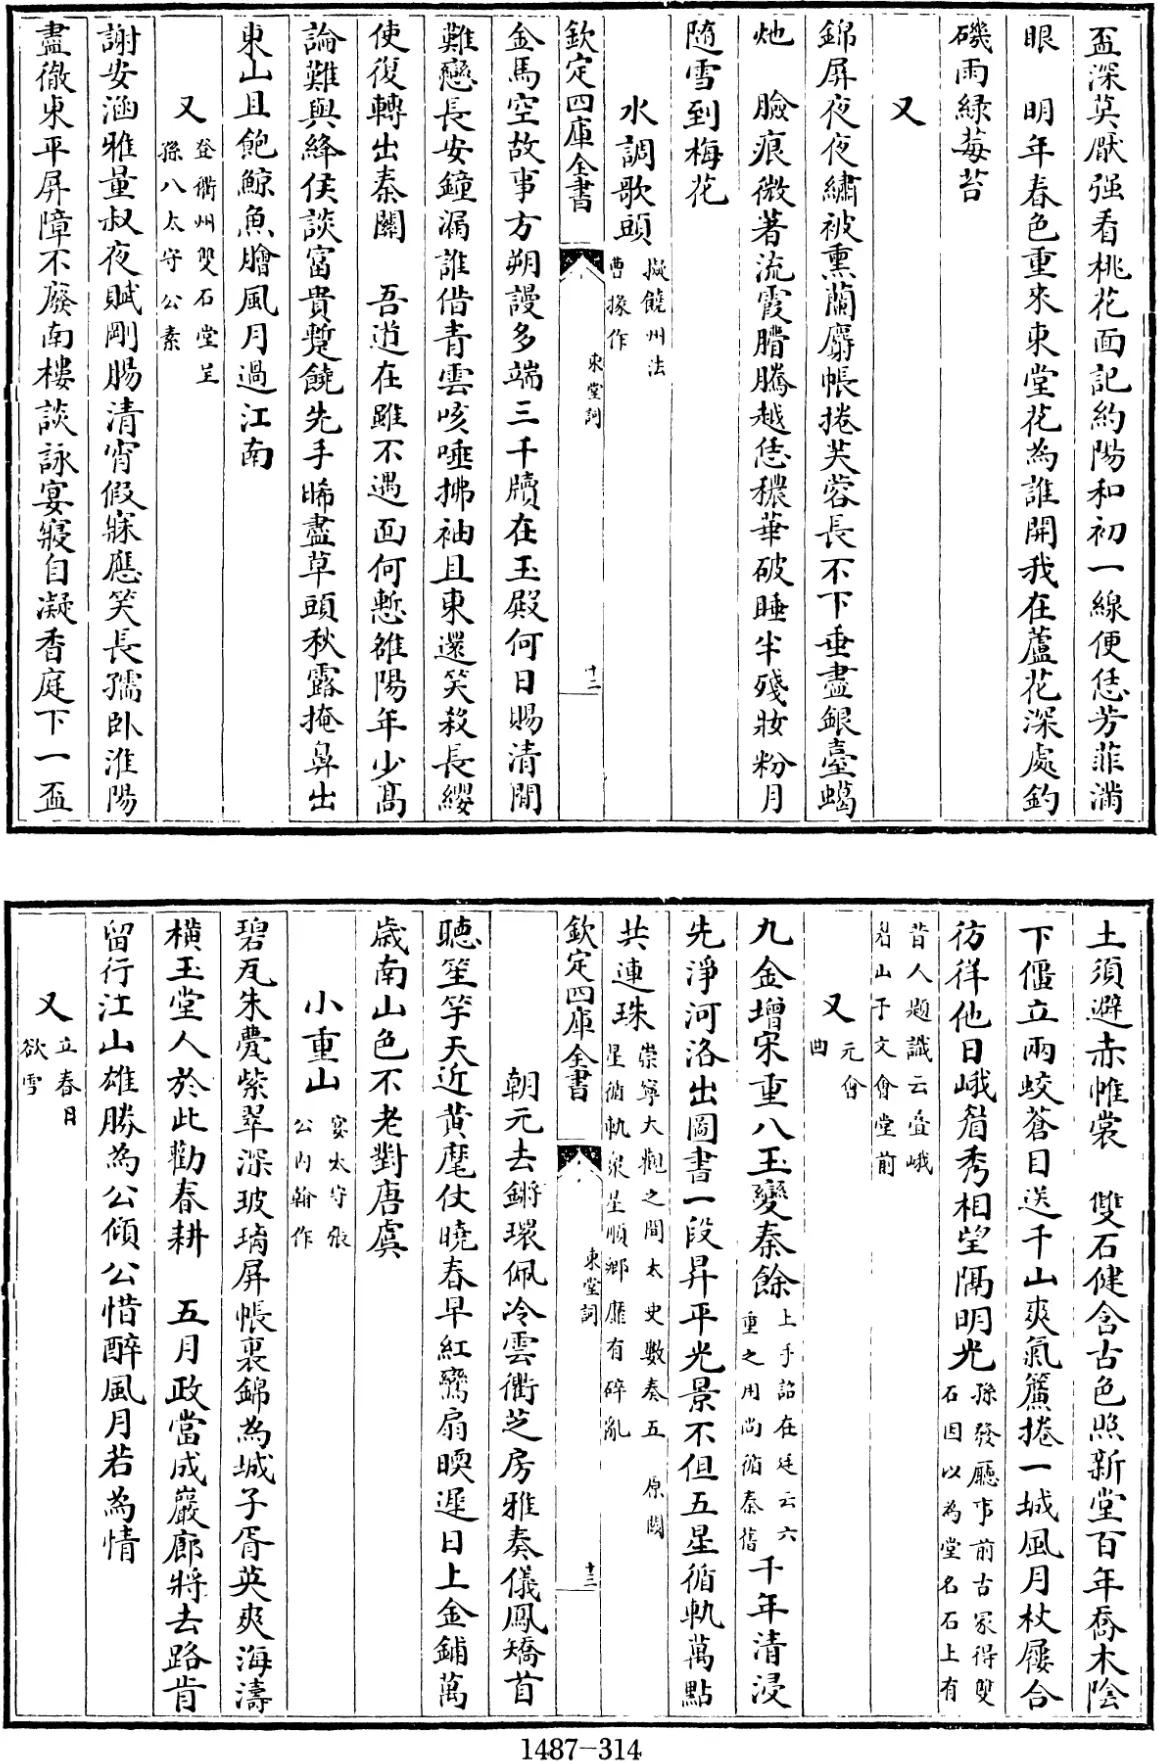 盃深莫厭强看桃花面記約陽和初一線便恁芳菲滿
眼　明年春色重來東堂花為誰開我在蘆花深處釣
磯雨緑莓苔
又
錦屏夜夜繡被熏蘭麝帳捲芙蓉長不下垂盡銀臺蠟
灺　臉痕微著流霞䐶騰越恁穠華破睡半殘妝粉月
随雪到梅花
水調歌頭
擬饒州法
曹掾作
欽定四庫全書
東堂詞
十二
金馬空故事方朔謾多端三千牘在玉殿何日賜清閒
難戀長安鐘漏誰借青雲咳唾拂袖且東還笑殺長纓
使復轉出秦關　吾道在雖不遇面何慙雒陽年少髙
論難與絳侯談富貴蹔饒先手晞盡草頭秋露掩鼻出
東山且飽鯨魚膾風月過江南
又
登衢州雙石堂呈
孫八太守公素
謝安涵雅量叔夜賦剛腸清宵假寐應笑長孺卧淮陽
盡徹東平屏障不廢南樓談詠宴寢自凝香庭下一盃
土須避赤帷裳　雙石健含古色照新堂百年喬木陰
下僵立兩蛟蒼目送千山爽氣簾捲一城風月杖屨合
彷徉他日峨眉秀相望隔明光
孫發廳事前古冢得雙
石因以為堂名石上有
昔人題識云叠峨
眉山于文會堂前
又
元會
曲
九金增宋重八玉變秦餘
上手詔在廷云六
重之用尚循秦舊
千年清浸
先淨河洛出圖書一段昇平光景不但五星循軌萬點
共連珠
崇寧大觀之間太史數奏五
星循軌衆星順鄉靡有碎亂
原闕
欽定四庫全書
東堂詞
十三
朝元去鏘環佩冷雲衢芝房雅奏儀鳳矯首
聽笙竽天近黄麾仗曉春早紅鸞扇暖遲日上金鋪萬
歲南山色不老對唐虞
小重山
宴太守張
公内翰作
碧瓦朱甍紫翠深玻璃屏帳裏錦為城子胥英爽海濤
横玉堂人於此勸春耕　五月政當成巖廊將去路肯
留行江山雄勝為公傾公惜醉風月若為情
又
立春日
欲雪
1487-314